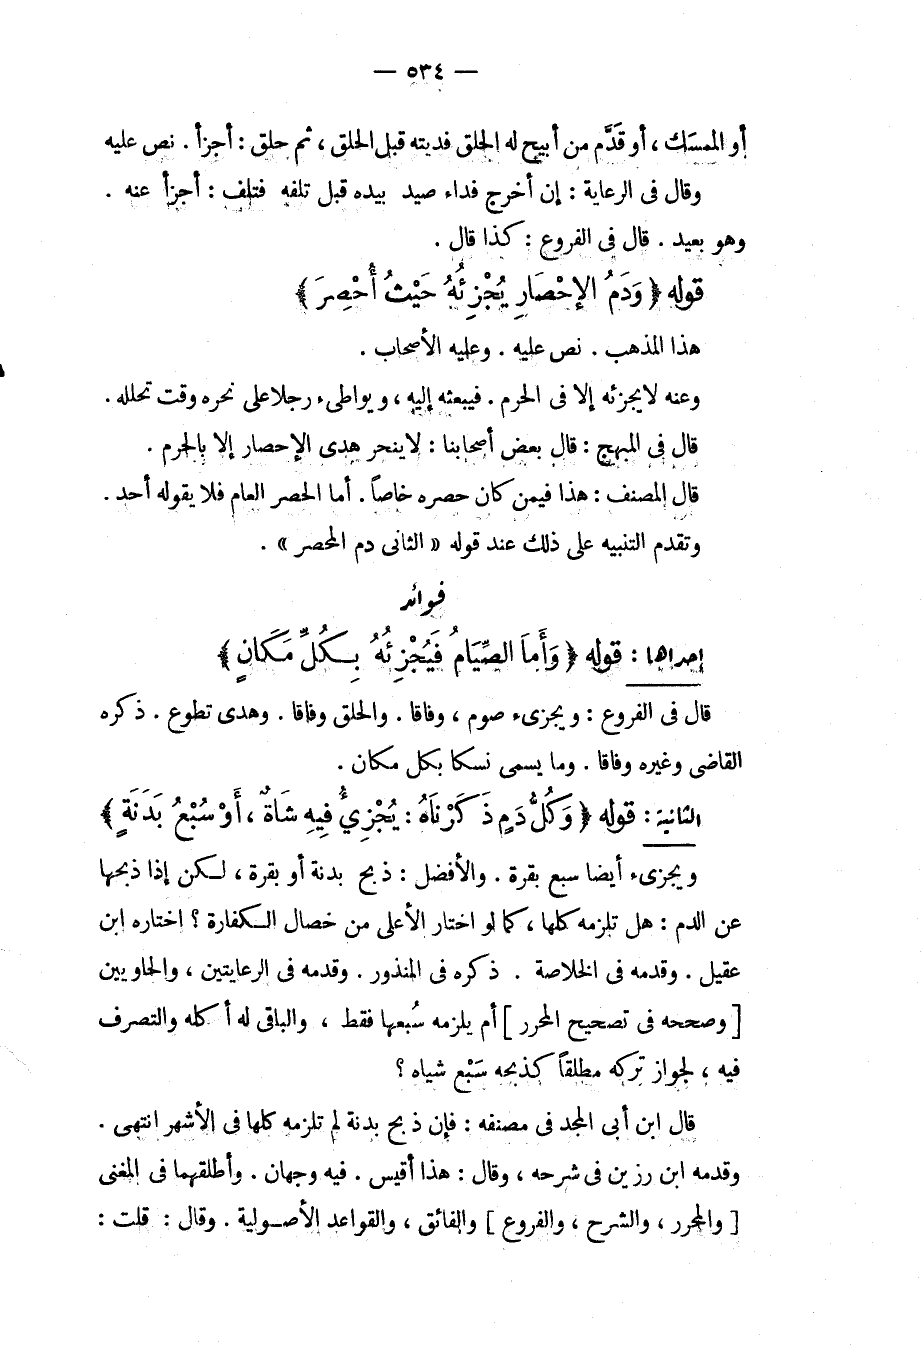 — ٥٣٤ —
أو الممسك ، أو قَدَّم من أبيح له الحلق فديته قبل الحلق ، ثم حلق : أجزأ . نص عليه
وقال فى الرعاية : إن أخرج فداء صيد بيده قبل تلفه فتلف : أجزأ عنه .
وهو بعيد . قال فى الفروع : كذا قال .
قوله ﴿ وَدَمُ الإحْصَارِ يُجْزِئُهُ حَيْثُ أُحْصِرَ ﴾
هذا المذهب . نص عليه . وعليه الأصحاب .
وعنه لايجزئه إلا فى الحرم . فيبعثه إليه ، ويواطىء رجلا على نحره وقت تحلله .
قال فى المبهج : قال بعض أصحابنا : لاينحر هدى الإحصار إلا بالحرم .
قال المصنف : هذا فيمن كان حصره خاصاً . أما الحصر العام فلا يقوله أحد .
وتقدم التنبيه على ذلك عند قوله « الثانى دم المحصر » .
فوائد
إحداها : قوله ﴿ وَأَمَا الصِّيَامُ فَيُجْزِئُهُ بِكُلِّ مَكَانٍ ﴾
قال فى الفروع : ويجزىء صوم ، وفاقا . والحلق وفاقا . وهدى تطوع . ذكره
القاضى وغيره وفاقا . وما يسمى نسكا بكل مكان .
الثانية : قوله ﴿ وَكُلُّ دَمٍ ذَكَرْنَاهُ : يُجْزِئُ فِيهِ شَاةٌ ، أَوْ سُبْعُ بَدَنَةٍ ﴾
ويجزىء أيضا سبع بقرة . والأفضل : ذبح بدنة أو بقرة ، لكن إذا ذبحها
عن الدم : هل تلزمه كلها ، كما لو اختار الأعلى من خصال الكفارة ؟ اختاره ابن
عقيل . وقدمه فى الخلاصة . ذكره فى المنذور . وقدمه فى الرعايتين ، والحاويين
[ وصححه فى تصحيح المحرر ] أم يلزمه سُبعها فقط ، والباقى له أكله والتصرف
فيه ، لجواز تركه مطلقاً كذبحه سَبْع شياه ؟
قال ابن أبى المجد فى مصنفه : فإن ذبح بدنة لم تلزمه كلها فى الأشهر انتهى .
وقدمه ابن رزين فى شرحه ، وقال : هذا أقيس . فيه وجهان . وأطلقهما فى المغنى
[ والمحرر ، والشرح ، والفروع ] والفائق ، والقواعد الأصولية . وقال : قلت :